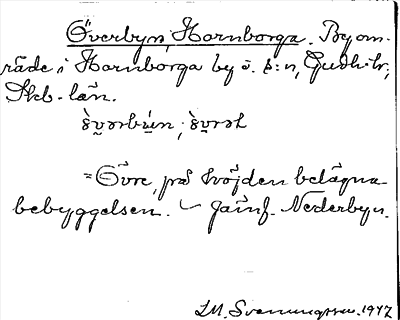 Överbyn, Hornborga. Byom-
råde i Hornborga by o. s:n, Gudh. hr,
Skb. län.
= Övre, på höjden belägna
bebyggelsen. ~ Jämf. Nederbyn.
I.M. Svenungsson. 1947